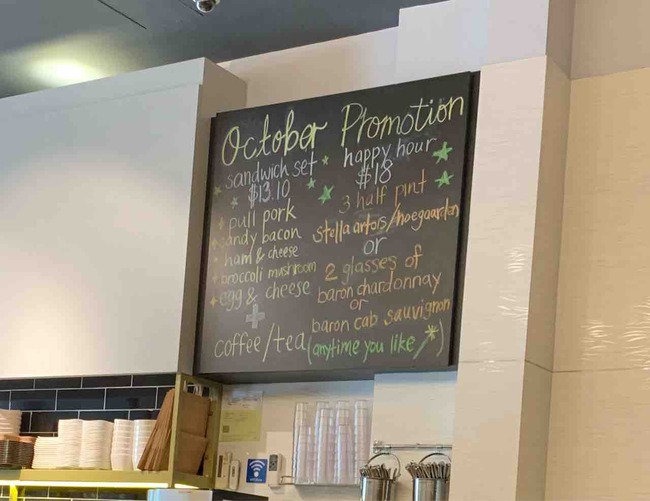 October Promotion
sandwich set
$13.10
pull pork
candy bacon
ham & cheese
broccoli mushroom
egg & cheese
+
coffee/tea
happy hour
$18
3 half pint
stella artois/hoegaarden
or
2 glasses of
baron chardonnay
or
baron cab sauvignon
(anytime you like)